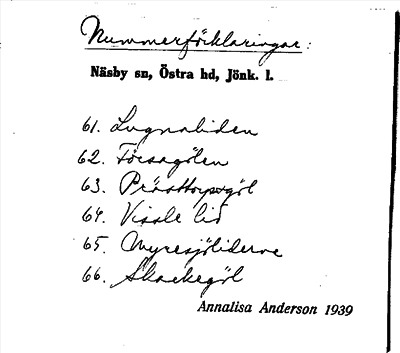 Nummerförklaringar:
Näsby sn, Östra hd, Jönk. l.
61. Lugnaliden
62. Försagölen
63. Prästtorpsgöl
64. Vissle lid
65. Myresjöliderne
66. Skackegöl
Annalisa Anderson 1939